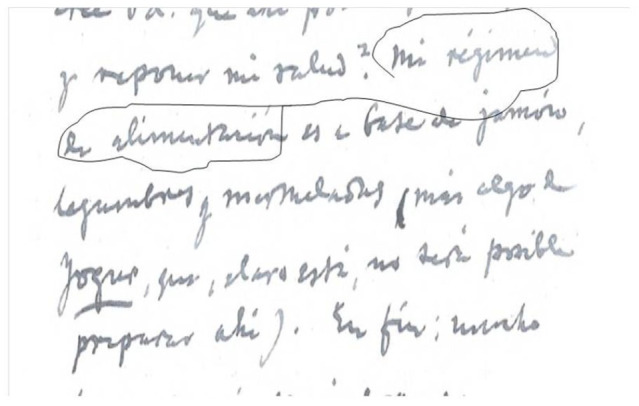 que
y reponer mi salud? Mi régimen
de alimentación es a base de jamón,
legumbres y mermeladas (más algo de
Yogur, que, claro está, no será posible
preparar ahí). En fin; mucho